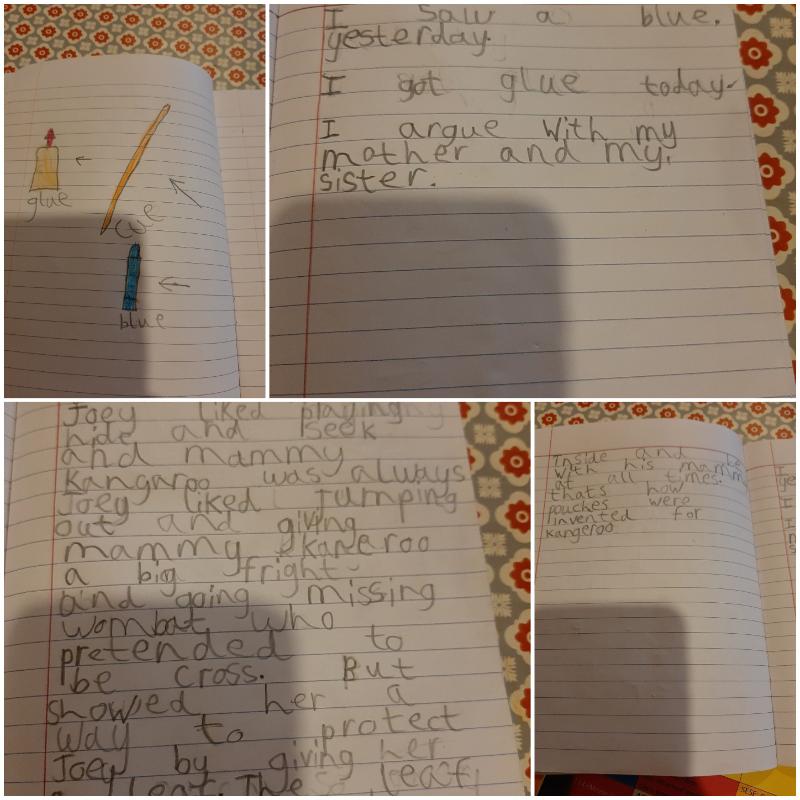 glue
cue
blue
I saw a blue.
yesterday.
I got glue today.
I argue with my
mother and my.
sister.
Joey liked playing
hide and seek
and mammy
Kangaroo was always
Joey liked Jumping
out and giving
mammy
a big fright
and going missing
wombat who
pretended to
be cross. But
showed her a
way to protect
Joey by giving her
a The leaf
Inside and be
with his mamm
at all times.
thats how
pouches were
invented for
kangeroo